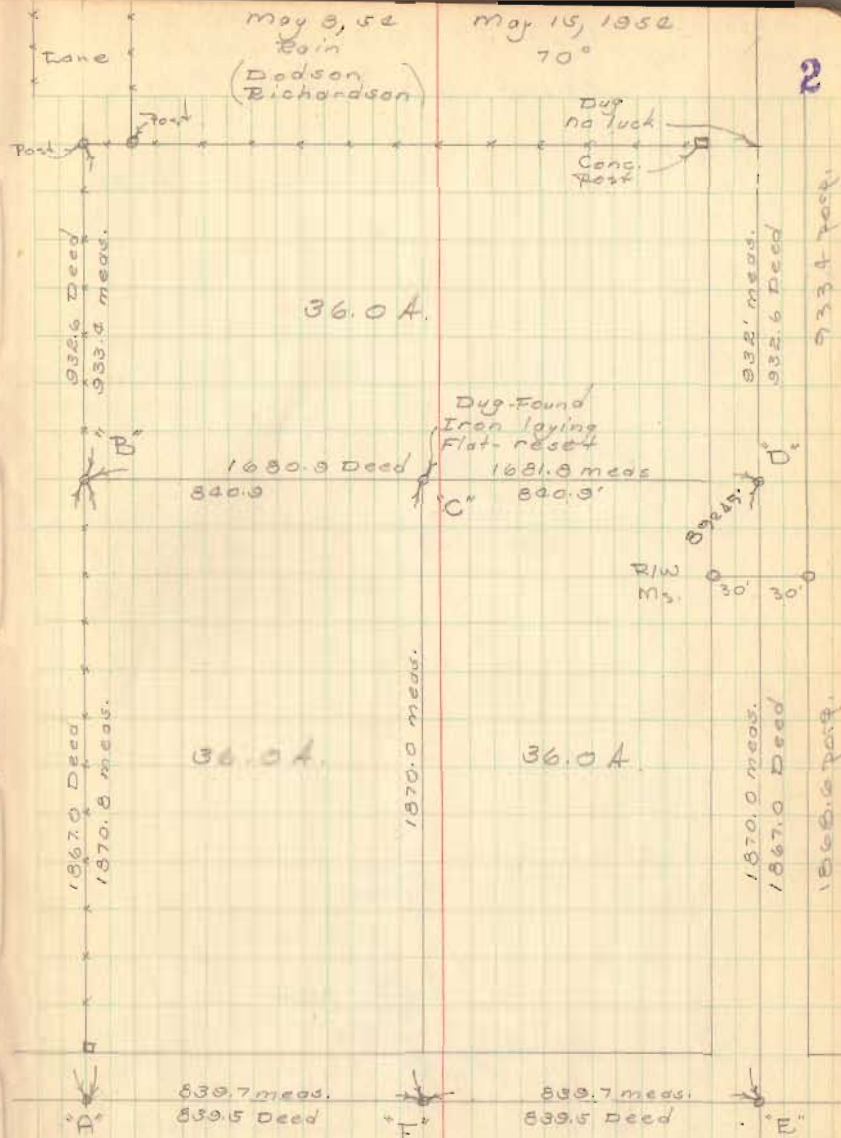 May 9, 52
Rain
(Dodson
Richardson)
May 15, 1952
70°
2
Lane
Post
Post
Dug
no luck
Conc.
Post
932.6 Deed
933.2 meas.
36.0 A.
932' meas.
932.6 Deed
933.4
"B"
Dug-Found
Iron laying
Flat-reset
1680.9 Deed
1681.8 meas
840.9
"C"
840.9'
"D"
R/W
Ms.
30'
30'
1867.0 Deed
1870.8 meas.
36.0 A.
1870.0 meas.
36.0 A
1870.0 meas.
1867.0 Deed
1868.6
839.7 meas.
839.5 Deed
839.7 meas.
839.5 Deed
"A"
"F"
"E"